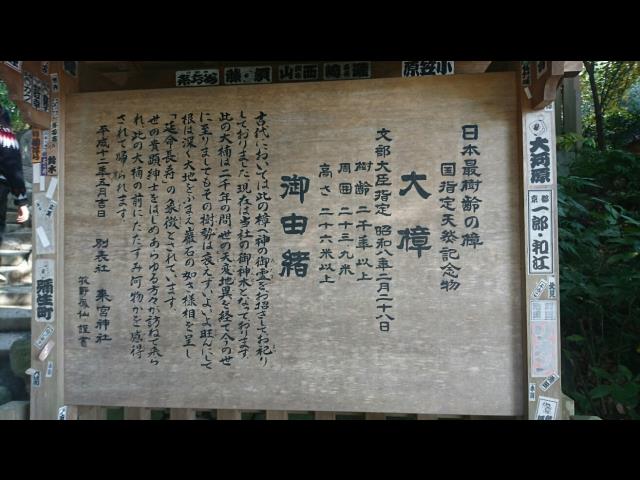 日本最樹齢の樟
国指定天然記念物
大樟
文部大臣指定 昭和八年二月二十八日
樹齢 二千年以上
周囲 二十三、九米
高さ 二十六米以上
御由緒
古代においては此の樟へ神の御霊をお招きしてお祀り
しておりました。現在は当社の御神木となっております
此の大楠は二千年の間、世の天変地異を経て今の世
に至りましてもその樹勢は衰えず、いよいよ旺んにして
根は深く大地をふまえ巌石の如き様相を呈し
「延命長寿」の象徴とされています。
世の貴顕紳士をはじめあらゆる方々が訪ねて来ら
れ、此の大楠の前にたたずみ何物かを感得
されて帰られます
平成十二年五月吉日 別表社 来宮神社
牧野 謹書
大河原
京都
一郎・和江
弥生町
鈴木
小笠原
西山